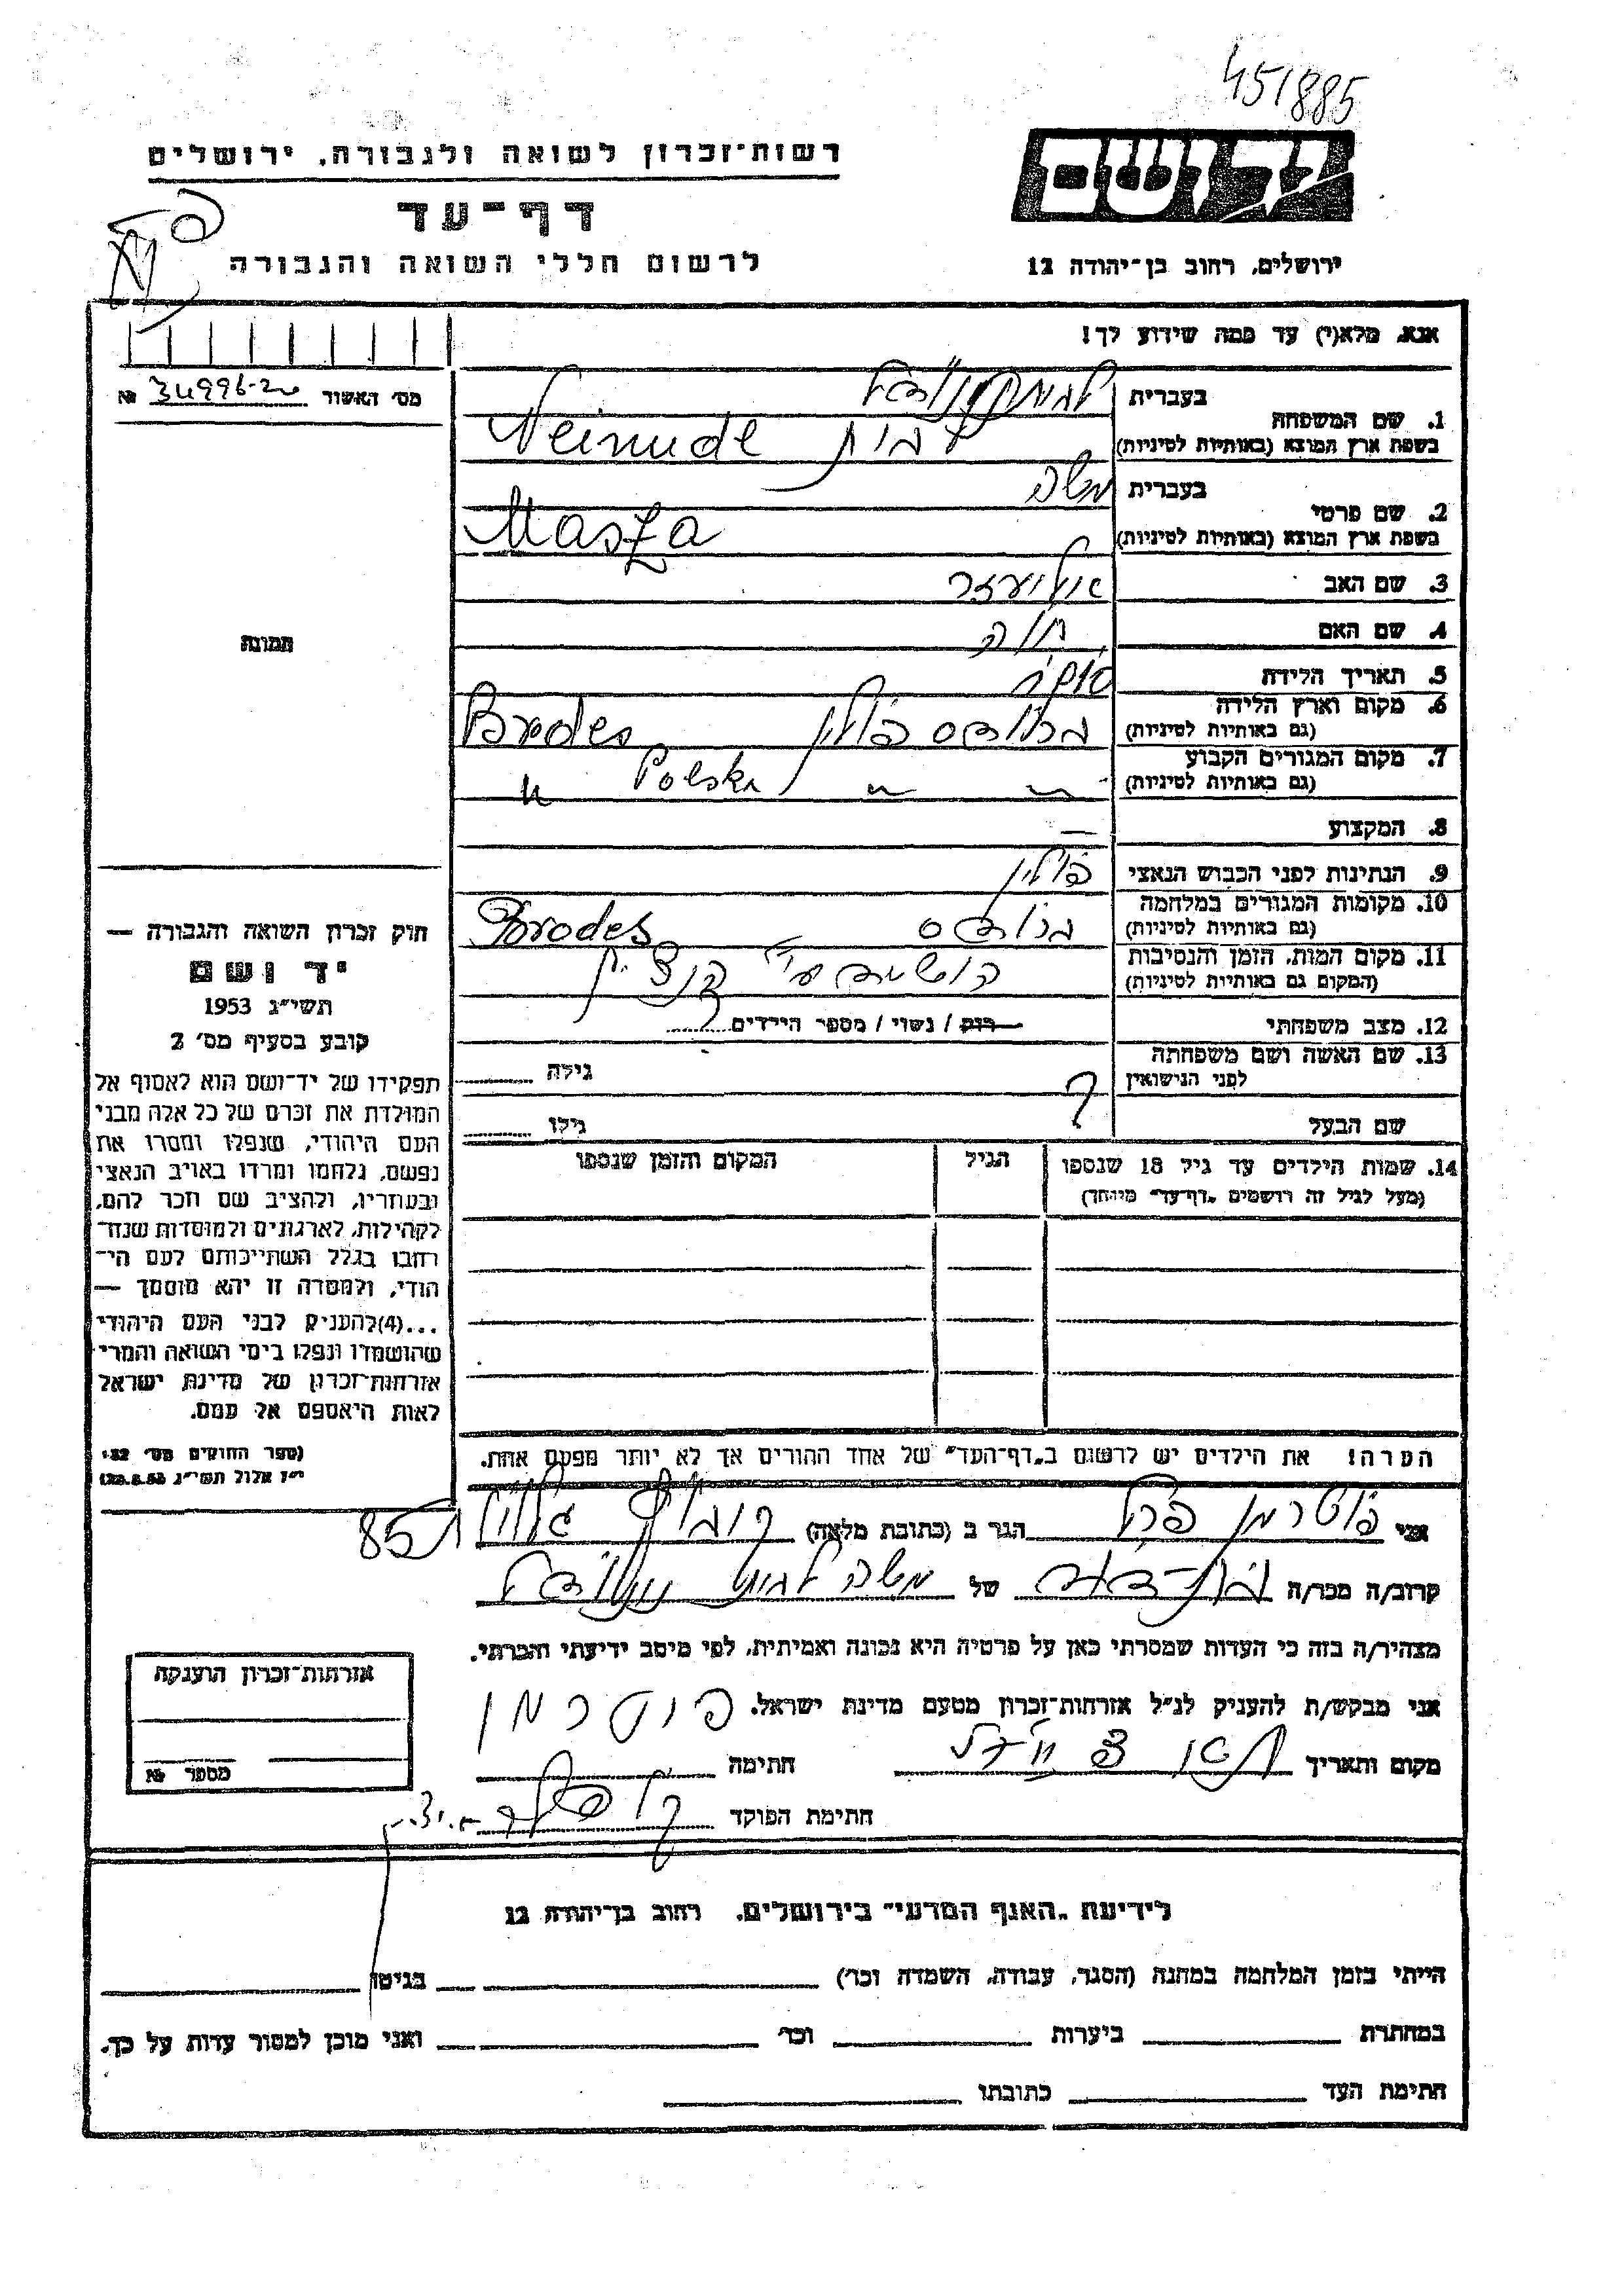 451885
רשות־זכרון לשואה ולגבורה, ירושלים
יד ושם
דף־עד
לרשום חללי השואה והגבורה
ירושלים, רחוב בן־יהודה 12
אנא, מלא(י) עד כמה שידוע לך!
מס׳ האשור 34996-20 №
1. שם המשפחה
בעברית
בשפת ארץ המוצא (באותיות לטיניות) Neinudel
2. שם פרטי
בעברית משה
בשפת ארץ המוצא (באותיות לטיניות) Masza
3. שם האב
4. שם האם חוה
5. תאריך הלידה
6. מקום וארץ הלידה
(גם באותיות לטיניות) פולין Brodes
7. מקום המגורים הקבוע
(גם באותיות לטיניות) Polska
8. המקצוע —
9. הנתינות לפני הכבוש הנאצי פולין
10. מקומות המגורים במלחמה
(גם באותיות לטיניות) Brodes
11. מקום המות, הזמן והנסיבות
(המקום גם באותיות לטיניות)
12. מצב משפחתי רוק / נשוי / מספר הילדים
13. שם האשה ושם משפחתה
לפני הנישואין
גילה
שם הבעל
גילו
14. שמות הילדים עד גיל 18 שנספו
(מעל לגיל זה רושמים „דף־עד״ מיוחד)
הגיל
המקום והזמן שנספו
תמונה
חוק זכרון השואה והגבורה —
יד ושם
תשי״ג 1953
קובע בסעיף מס׳ 2
תפקידו של יד־ושם הוא לאסוף אל
המולדת את זכרם של כל אלה מבני
העם היהודי, שנפלו ומסרו את
נפשם, נלחמו ומרדו באויב הנאצי
ובעוזריו, ולהציב שם וזכר להם,
לקהילות, לארגונים ולמוסדות שנח־
רבו בגלל השתייכותם לעם הי־
הודי, ולמטרה זו יהא מוסמך —
...(4)להעניק לבני העם היהודי
שהושמדו ונפלו בימי השואה והמרי
אזרחות־זכרון של מדינת ישראל
לאות היאספם אל עמם.
(ספר החוקים מס׳ 132,
י״ז אלול תשי״ג 28.8.53)
הערה! את הילדים יש לרשום ב„דף־העד״ של אחד ההורים אך לא יותר מפעם אחת.
אני פוטרמן הגר ב (כתובת מלאה) 85
קרוב/ה מכר/ה בת־דוד של משה
מצהיר/ה בזה כי העדות שמסרתי כאן על פרטיה היא נכונה ואמיתית, לפי מיטב ידיעתי והכרתי.
אני מבקש/ת להעניק לנ״ל אזרחות־זכרון מטעם מדינת ישראל. פוטרמן
מקום ותאריך חתימה
חתימת הפוקד
אזרחות־זכרון הוענקה
מספר №
לידיעת „האגף המדעי״ בירושלים, רחוב בן־יהודה 12
הייתי בזמן המלחמה במחנה (הסגר, עבודה, השמדה וכו׳) בגיטו
במחתרת ביערות וכו׳ ואני מוכן למסור עדות על כך.
חתימת העד כתובתו